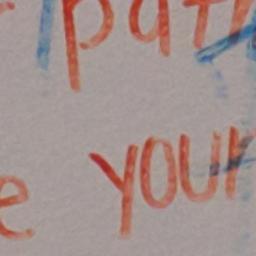 pat
e your